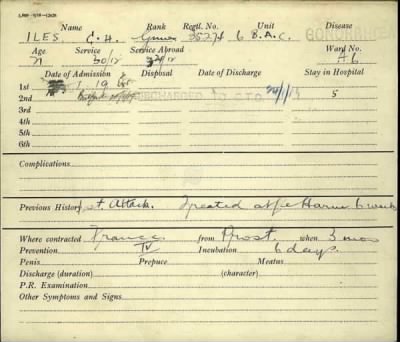 Name Rank Regtl. No. Unit Disease
ILES C.H. Gunner 3527A 6 B.A.C. GONORRHOEA
Age Service Service Abroad Ward No.
21 30/12 A6
Date of Admission Disposal Date of Discharge Stay in Hospital
1st 1.19
2nd DISCHARGED TO 5
3rd
4th
5th
6th
Complications
Previous History 1st Attack. Treated at Le Havre 6 weeks
Where contracted France from Prost. when 3 mos
Prevention IV Incubation 6 days
Penis Prepuce Meatus
Discharge (duration) (character)
P.R. Examination
Other Symptoms and Signs